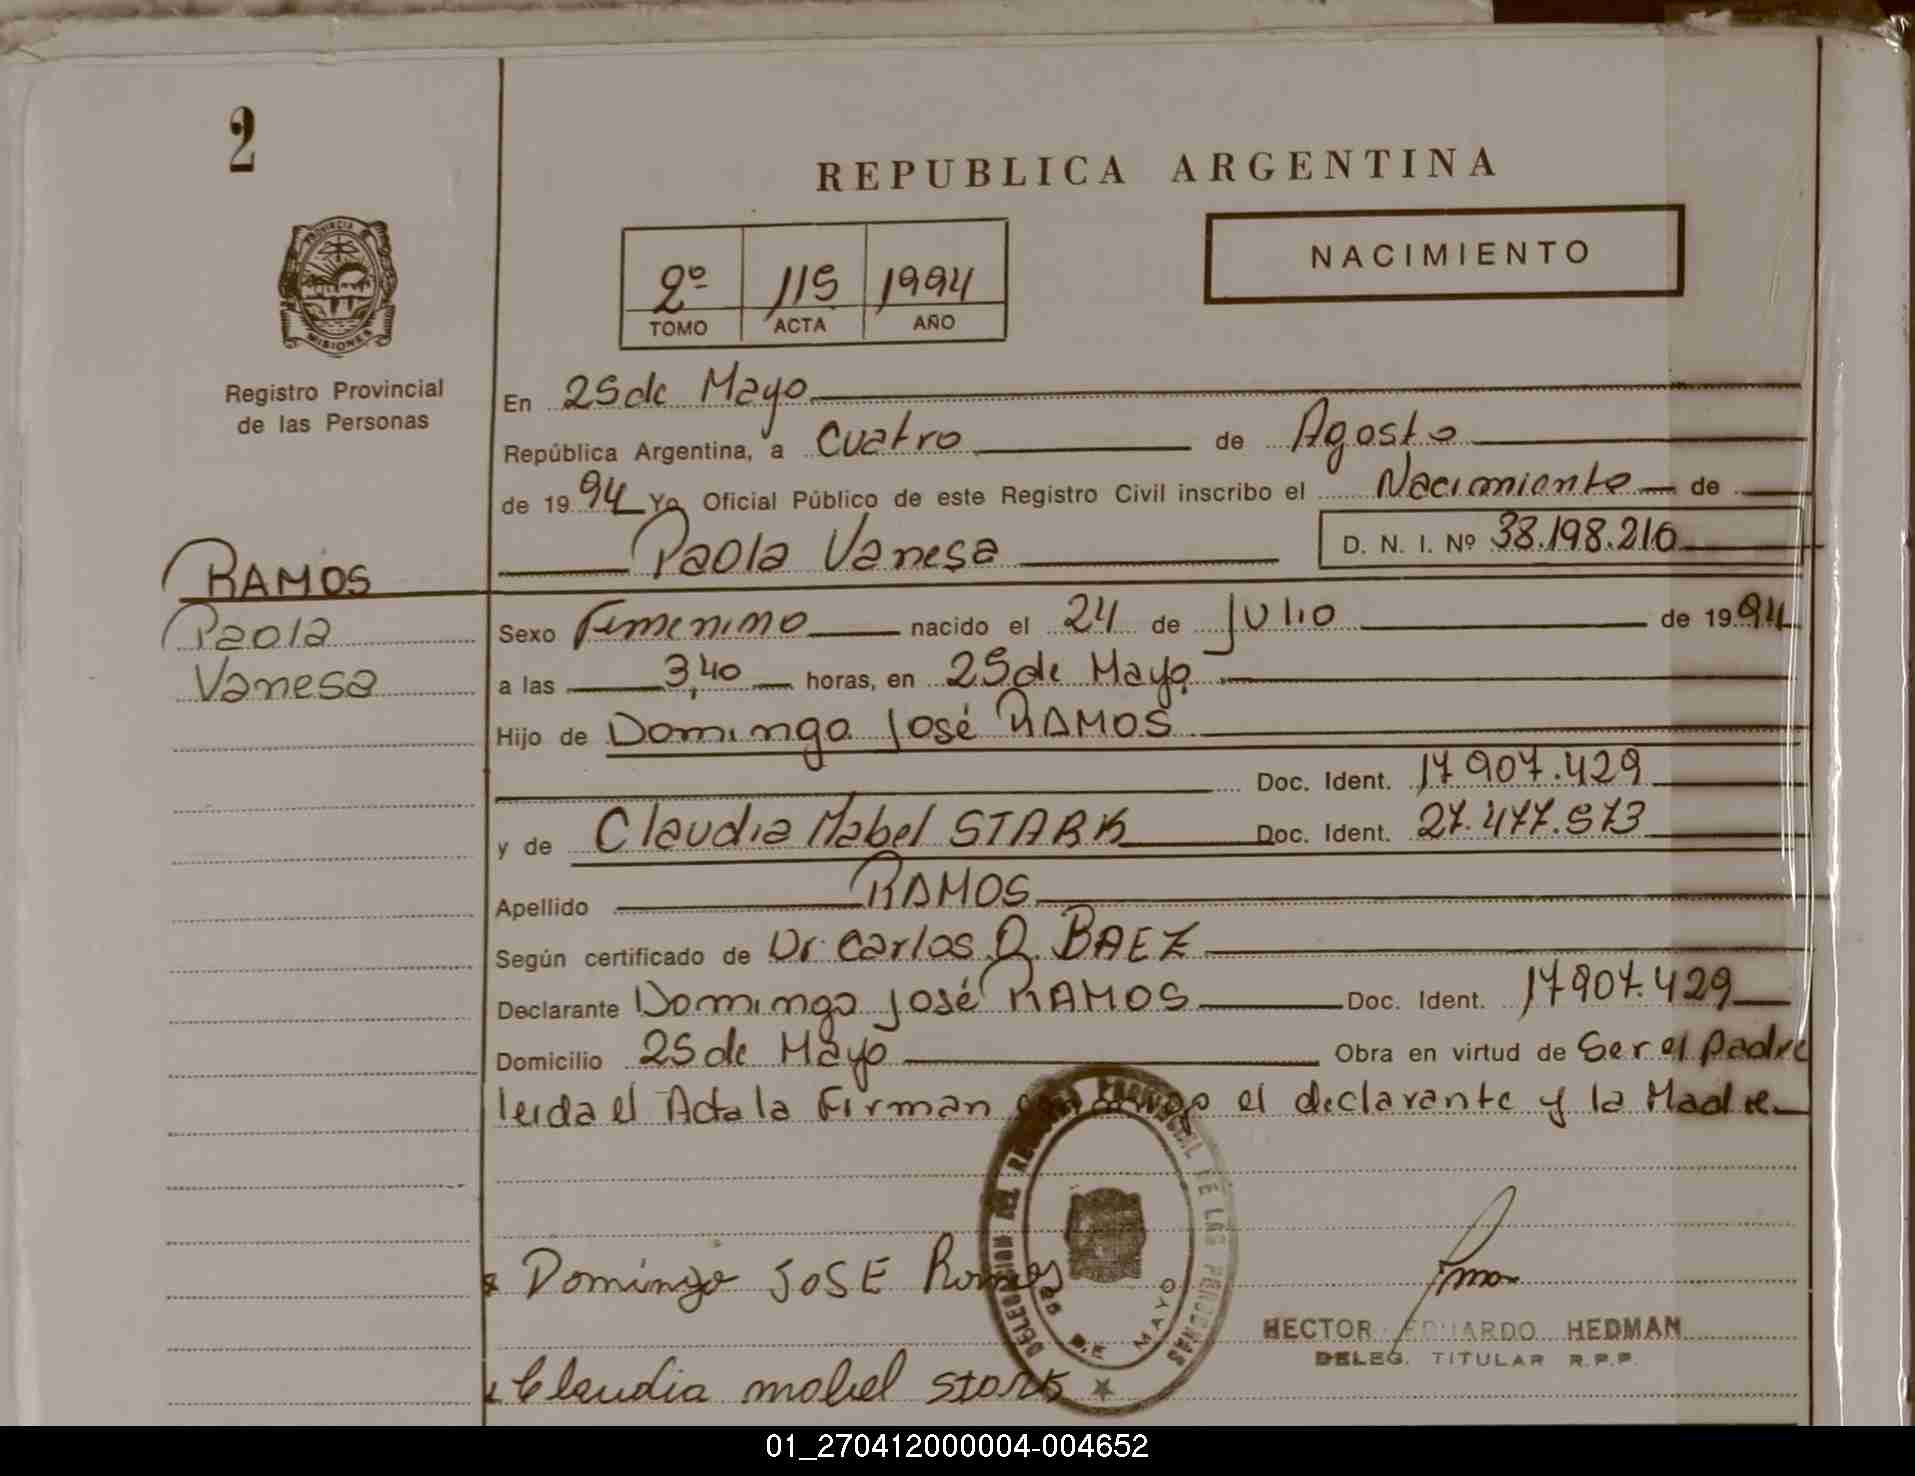 2
REPUBLICA ARGENTINA
PROVINCIA DE
MISIONES
Registro Provincial
de las Personas
2º 115 1994
TOMO ACTA AÑO
NACIMIENTO
En 25 de Mayo
República Argentina, a Cuatro de Agosto
de 1994 Yo Oficial Público de este Registro Civil inscribo el Nacimiento de
Paola Vanesa D. N. I. Nº 38.198.210
RAMOS
Paola
Vanesa
Sexo Femenino nacido el 24 de Julio de 1994
a las 3,40 horas, en 25 de Mayo
Hijo de Domingo José RAMOS
Doc. Ident. 17.907.429
y de Claudia Mabel STARK Doc. Ident. 27.477.573
Apellido RAMOS
Según certificado de Dr. Carlos D. BAEZ
Declarante Domingo José RAMOS Doc. Ident. 17.907.429
Domicilio 25 de Mayo Obra en virtud de Ser el padre
leida el Acta la Firman conmigo el declarante y la Madre
DELEGACION DEL REGISTRO PROVINCIAL DE LAS PERSONAS
25 DE MAYO
Domingo JOSE Ramos
HECTOR EDUARDO HEDMAN
DELEG. TITULAR R.P.P.
Claudia mabel stark
01_270412000004-004652